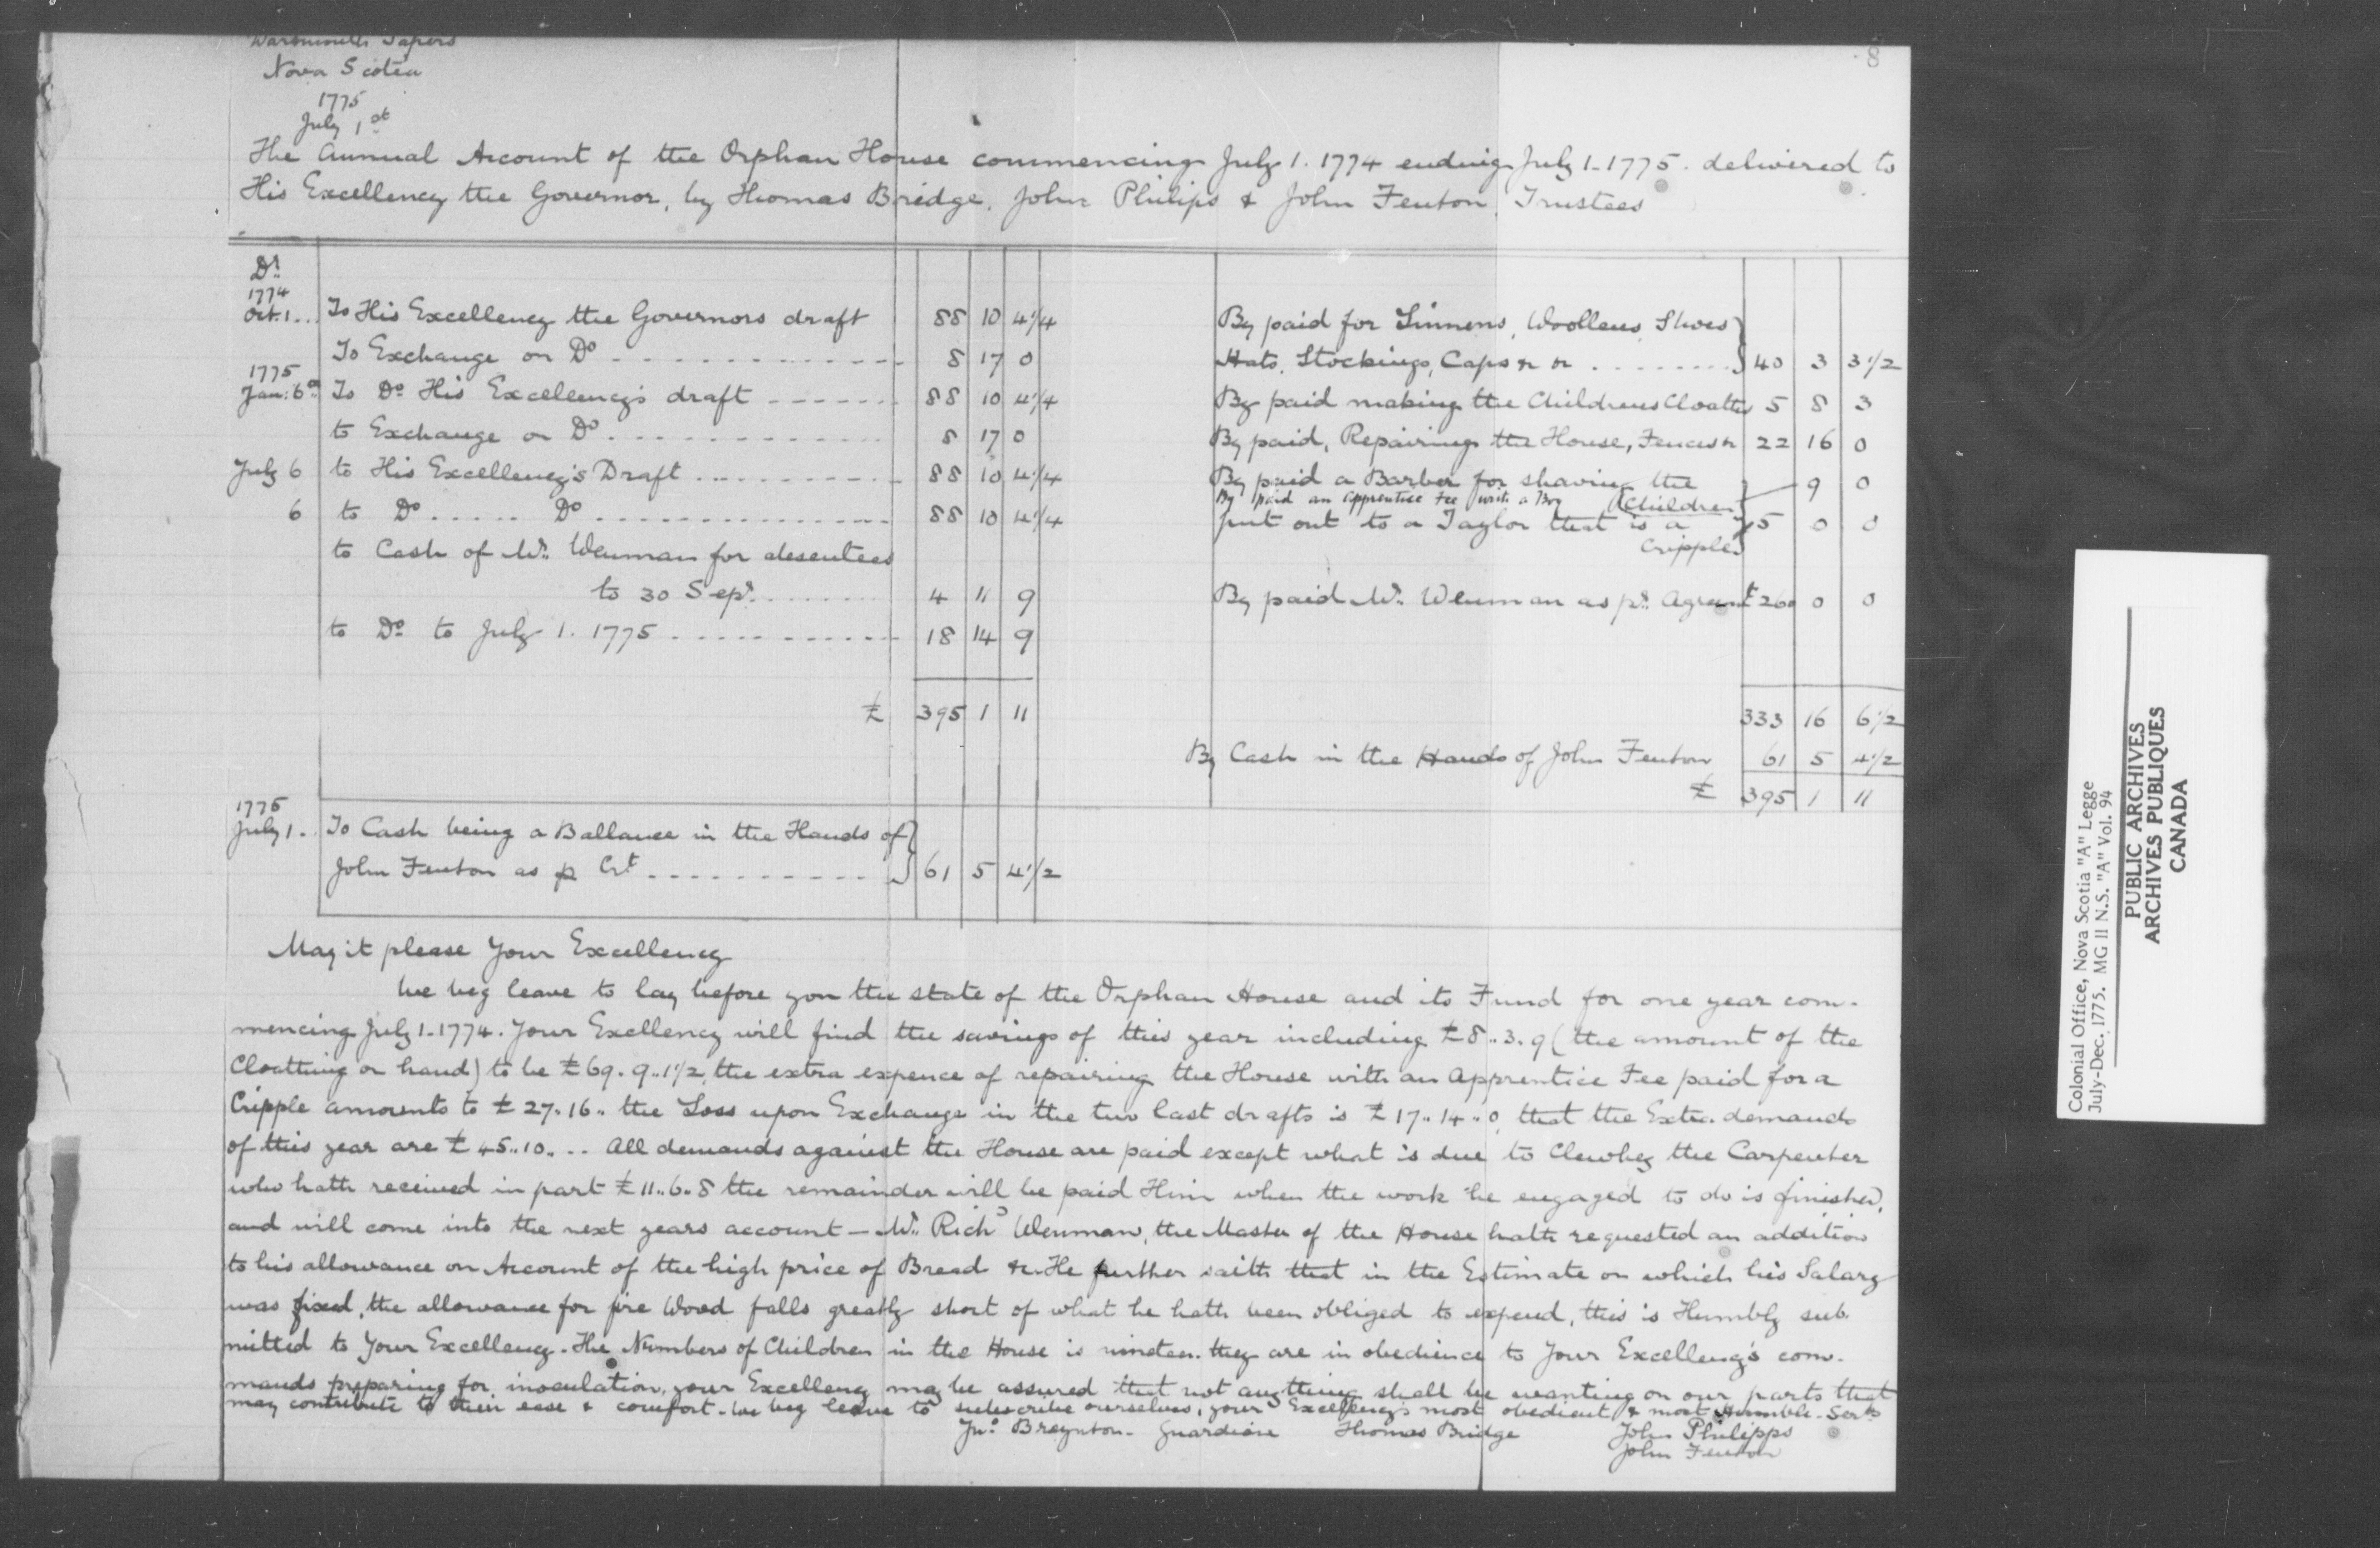 Dartmouth Papers
8
Nova Scotia
1775
July 1st
The Annual Account of the Orphan House commencing July 1. 1774 ending July 1-1775. delivered to
His Excellency the Governor, by Thomas Bridge, John Philips & John Fenton, Trustees
Dr
1774
Oct. 1... To His Excellency the Governors draft 88 10 4 1/4
To Exchange on Do 8 17 0
1775
Jan: 6th To Do His Excellency's draft 88 10 4 1/4
to Exchange on Do 8 17 0
July 6 to His Excellency's Draft 88 10 4 1/4
6 to Do Do 88 10 4 1/4
to Cash of Mr. Wenman for absentees
to 30 Sepr. 4 11 9
to Do to July 1. 1775 18 14 9
£ 395 1 11
By paid for Linnens, Woollens, Shoes
Hats, Stockings, Caps & & 40 3 3 1/2
By paid making the Childrens Cloaths 5 8 3
By paid, Repairing the House, Fences & 22 16 0
By paid a Barber for shaving the Children 9 0
By paid an apprentice Fee with a Boy
put out to a Taylor that is a 5 0 0
Cripple
By paid Mr. Wenman as pr. Agreemt £260 0 0
333 16 6 1/2
By Cash in the Hands of John Fenton 61 5 4 1/2
£ 395 1 11
1775
July 1. To Cash being a Ballance in the Hands of
John Fenton as p Crt 61 5 4 1/2
May it please Your Excellency
We beg leave to lay before you the state of the Orphan House and its Fund for one year com-
mencing July 1-1774. Your Excellency will find the savings of this year including £8..3.9 (the amount of the
Cloathing on hand) to be £69.9..1 1/2, the extra expence of repairing the House with an Apprentice Fee paid for a
Cripple amounts to £27.16.. the Loss upon Exchange in the two last drafts is £17..14..0, that the Extra demands
of this year are £45..10... All demands against the House are paid except what is due to Clewley the Carpenter
who hath received in part £11..6.8 the remainder will be paid Him when the work he engaged to do is finished,
and will come into the next years account - Mr. Richd Wenman, the Master of the House hath requested an addition
to his allowance on Account of the high price of Bread &c. He further saith that in the Estimate on which his Salary
was fixed, the allowance for fire Wood falls greatly short of what he hath been obliged to expend, this is Humbly sub-
mitted to Your Excellency. The Numbers of Children in the House is nineteen. they are in obedience to Your Excellency's com-
mands preparing for inoculation, your Excellency may be assured that not anything shall be wanting on our parts that
may contribute to their ease & comfort. We beg leave to subscribe ourselves, your Excellency's most obedient & most Humble Serts
Jno. Breynton - Guardian Thomas Bridge John Philipps
John Fenton
Colonial Office, Nova Scotia "A" Legge
July-Dec. 1775. MG 11 N.S. "A" Vol. 94
PUBLIC ARCHIVES
ARCHIVES PUBLIQUES
CANADA